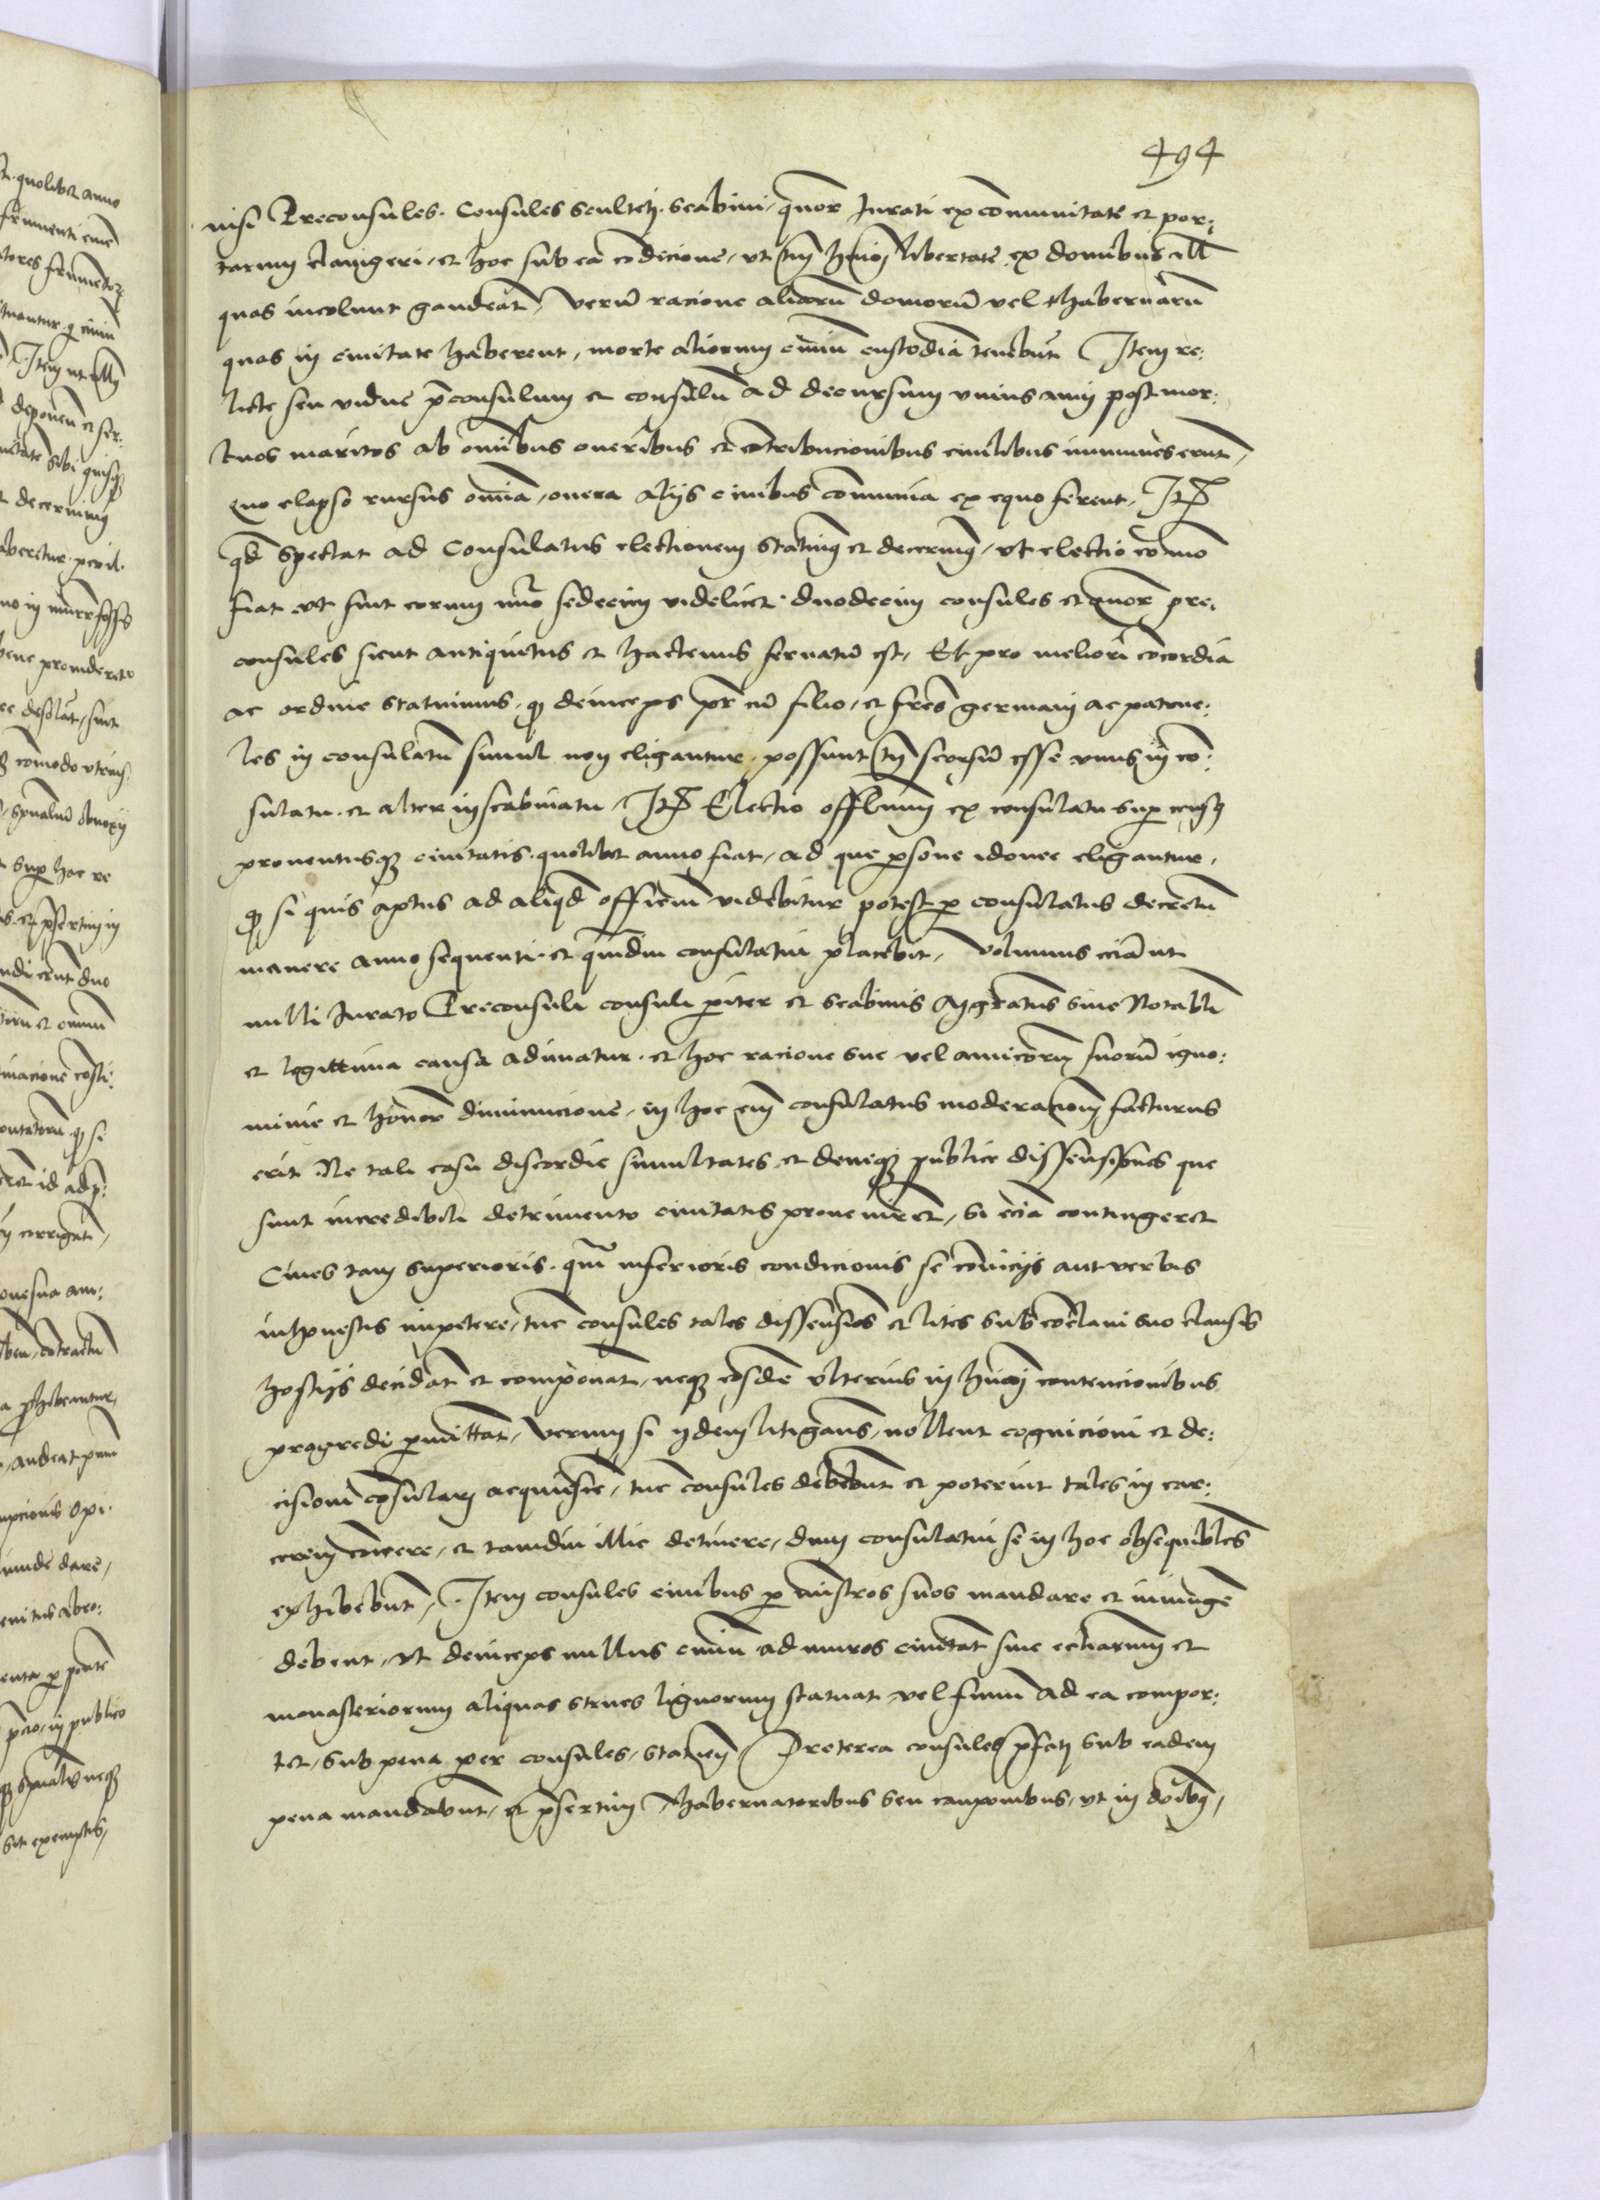 494
nisi Preconsules. Consules scultetꝫ. scabini, quor Jurati ex com̄unitate et por:
tarum clavigeri, et hoc sub ea cōdicione, vt tm̄ hmōi libertate ex domibus ill
quas incolunt gaudeāt, Verū racione aliorū domorū vel thabernarū
quas in civitate haberent, morte aliorum civiū custodiā tenebūt Item re:
licte seu vidue p̄consulum et consulū ad decursum vnius anni post mor:
tuos maritos ab om̄ibus oneribus et cōtribucionibus civilibus immunes erūt,
quo elapso rursus om̄ia, onera alijs civibus com̄unia ex equo ferent, Itē
qd̄ spectat ad Consulatus electionem statuimꝰ et decernimꝰ, vt electio eo mō
fiat vt sint eorum nūo sedecim videlicet. duodecim consules et quor pre:
consules sicut antiquitus et hactenus servatū est, Et pro meliori cōcordia
ac ordine statuimus, ꝙ deinceps pr̄ cū filio, et fr̄es germani ac patrue:
les in consulatū simul non eligantur, possunt tn̄ seorsū esse vnus in cō:
sulatu. et alter in scabinatu, Itē Electio officium ex consulatu sup
proventusqꝫ civitatis. quolibet anno fiat, ad que p̱sone idonee eligantur,
ꝙ si quis aptus ad aliqd̄ officiū videbitur potest p̱ consulatus decretū
manere anno sequenti. et quādiu consulatui placebit, Volumus eciā ut
nulli Jurato Preconsuli consuli p̱iter et scabinis Magratus sine Notabili
et legittima causa adimatur. et hoc racione sue vel amicorum suorū igno:
minie et honor diminucione, in hoc em̄ consulatus moderacionē facturus
erit Ne tali casu discordie simultates et deniqꝫ publice dissensiones que
sunt incredibili detrimento civitatis provenirēt, Si eciā contingeret
Cives tam superioris. quā inferioris condicionis se cōvicijs aut verbis
inhonestis impetere, tūc consules tales dissensiōes et lites sub cōclavi suo clausis
hostijs decidāt et componāt, neqꝫ eosdē vlterius in hmōi contencionibus
progredi p̱mittāt, Verum si ijdem litigātes, nollent cognicioni et de:
cisioni cōsulari acquiescē, tūc consules debebūt et poterūt tales in car:
cerem cōicere, et tamdiu illic detinere, dum consulatui se in hoc obsequibles
exhibebūt, Item consules civibus p̱ mīstros suos mandare et iniungē
debent, vt deinceps nullus civiū ad muros civitat sive eccliarum et
monasteriorum aliquas strues lignorum statuat vel fimū ad ea compor:
tet, sub pena per consules, Preterea consules p̄fati sub eadem
pena mandabūt, et p̄sertim Thabernatoribus seu cauponibus, vt in